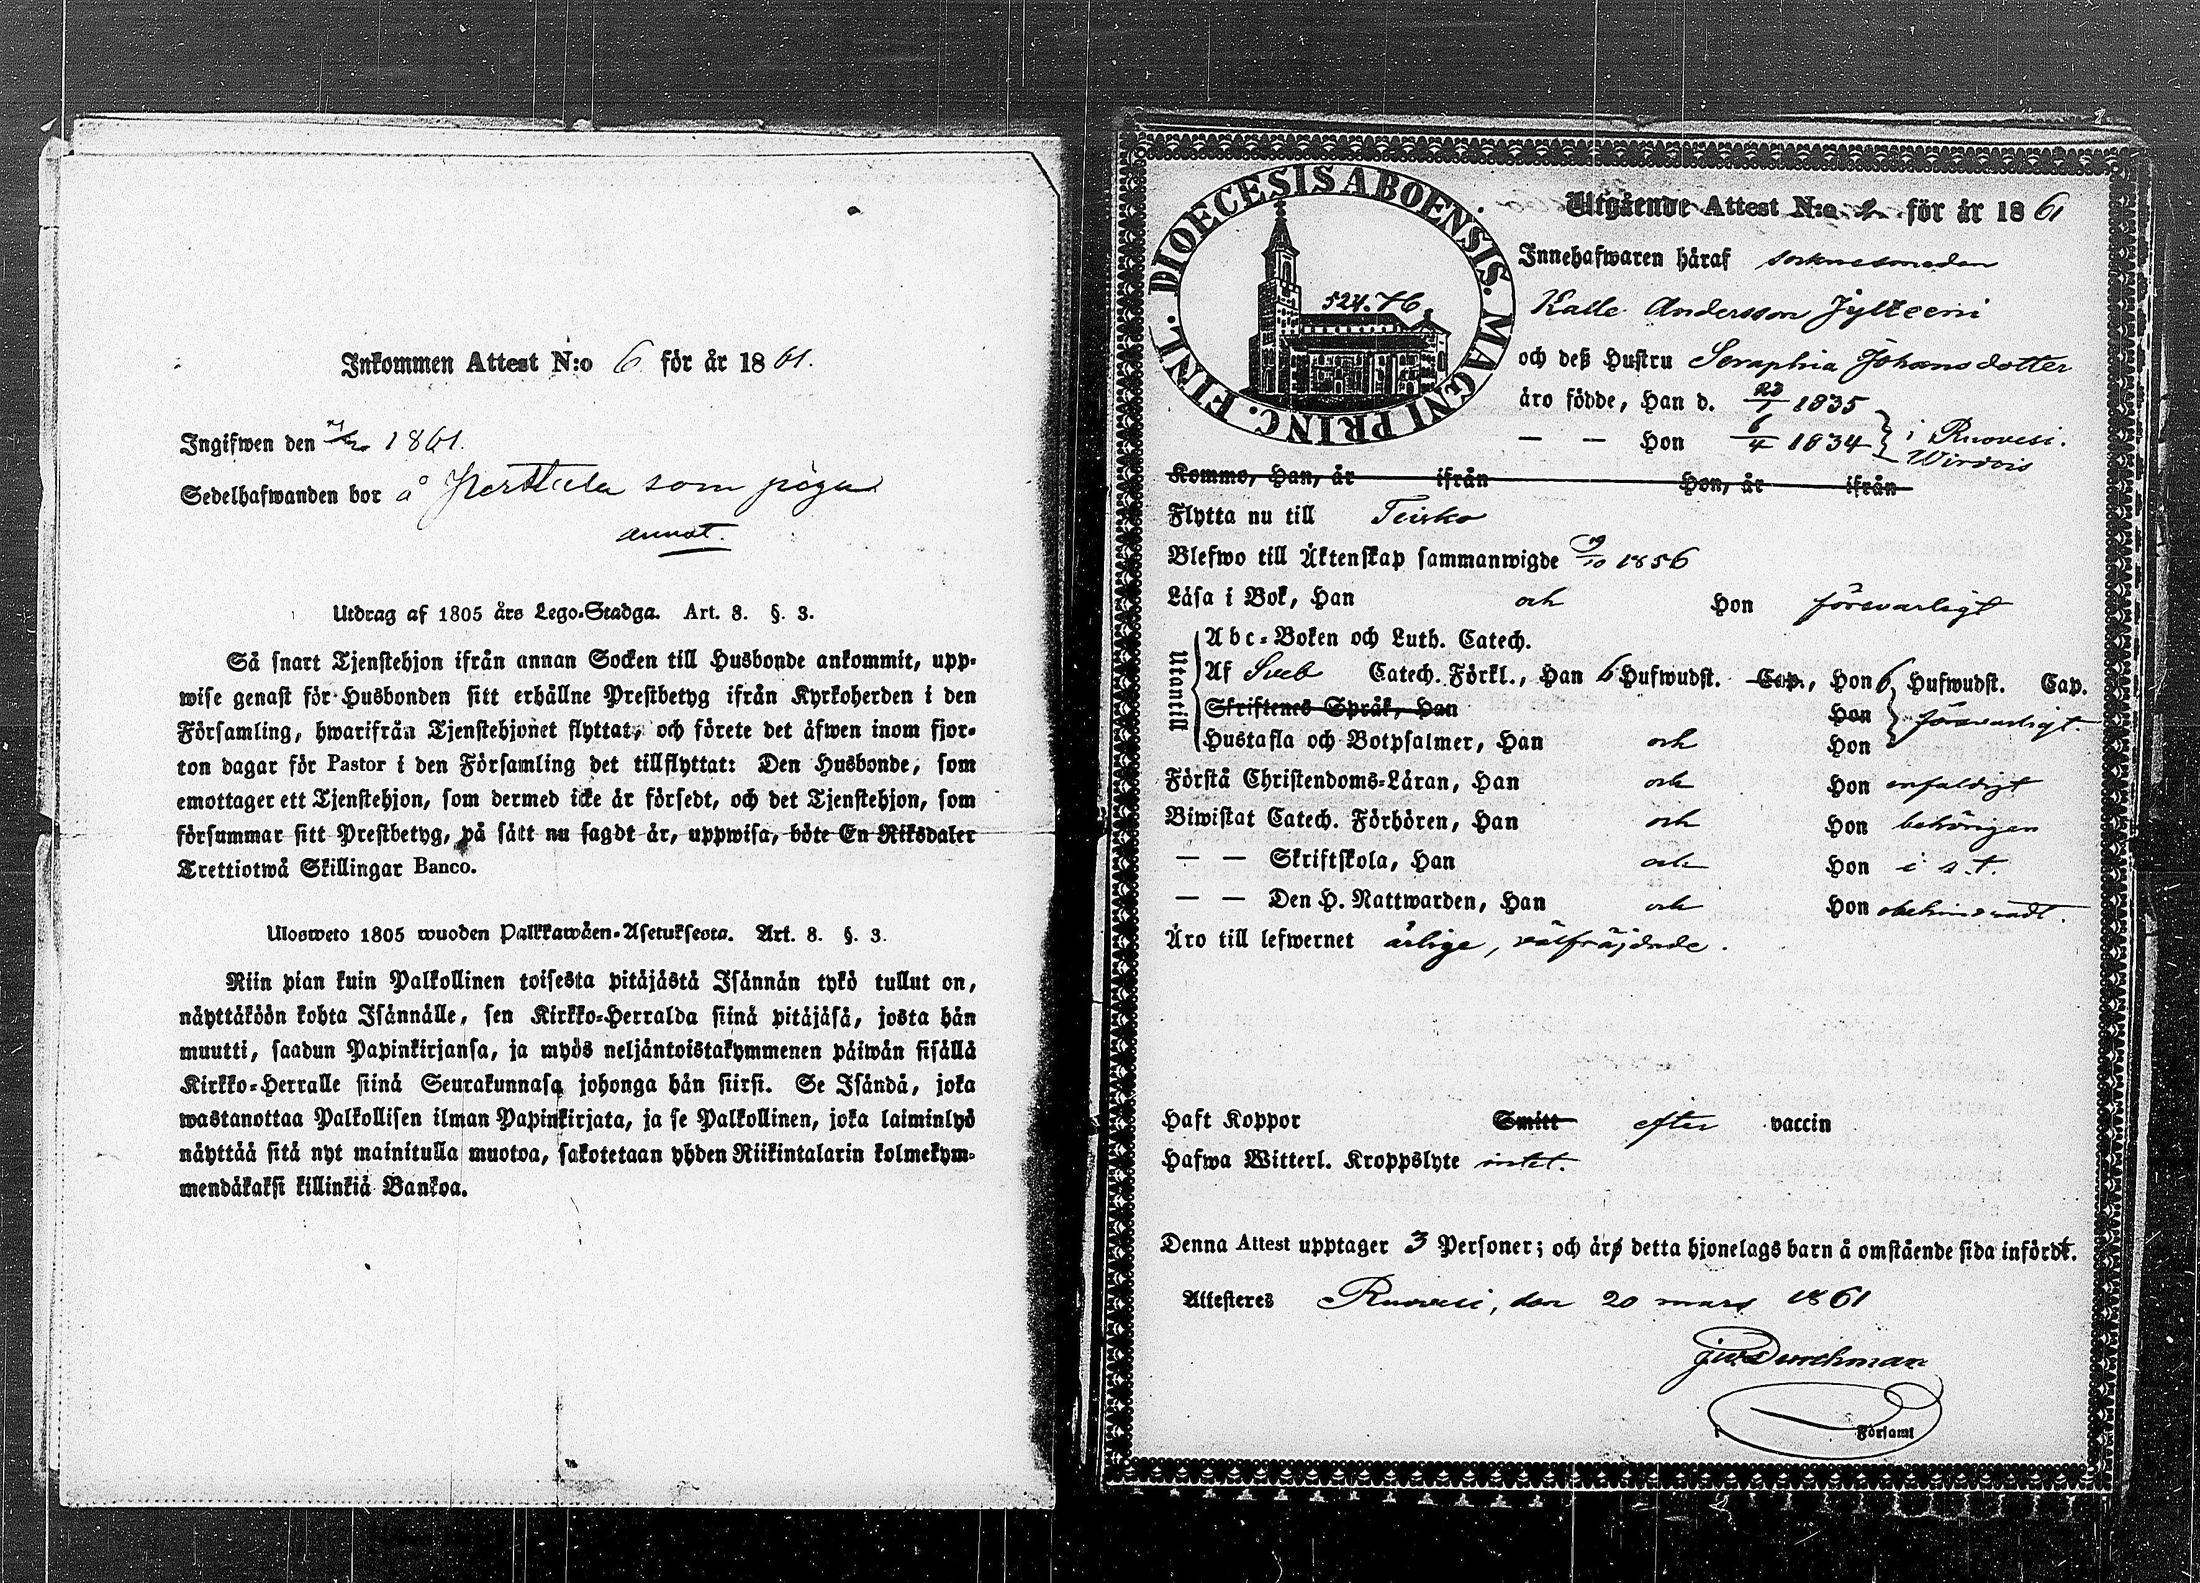 Inkommen Attest N:o 6 för år 1861.
Ingifwen den 1861.
Sedelhafwanden bor å Perttula som
annat.
Utdrag af 1805 års Lego-Stadga. Art. 8. §. 3.
Så snart Tjenstehjon ifrån annan Socken till Husbonde ankommit, upp-
wise genast för Husbonden sitt erhållne Prestbetyg ifrån Kyrkoherden i den
Församling, hwarifrån Tjenstehjonet flyttat, och förete det äfwen inom fjor-
ton dagar för Pastor i den Församling det tillflyttat: Den Husbonde, som
emottager ett Tjenstehjon, som dermed icke är försedt, och det Tjenstehjon, som
försummar sitt Prestbetyg, på sätt nu sagdt är, uppwisa, böte En Riksdaler
Trettiotwå Skillingar Banco.
Ulosweto 1805 wuoden Palkkawäen-Asetuksesta. Art. 8. §. 3.
Niin pian kuin Palkollinen toisesta pitäjästä Isännän tykö tullut on,
näyttäköön kohta Isännälle, sen Kirkko-Herralda siinä pitäjäsä, josta hän
muutti, saadun Papinkirjansa, ja myös neljäntoistakymmenen päiwän sisällä
Kirkko-Herralle siinä Seurakunnasa johonga hän siirsi. Se Isändä, joka
wastanottaa Palkollisen ilman Papinkirjata, ja se Palkollinen, joka laiminlyö
näyttää sitä nyt mainitulla muotoa, sakotetaan yhden Riikintalarin kolmekym-
mendäkaksi killinkiä Bankoa.
DIOECESIS ABOENSIS. MAGNI PRINC. FINL.
524.76
Utgående Attest N:o för år 1861
Innehafwaren häraf socknesmeden
Kalle Andersson
och deß Hustru Seraphia Johansdotter
äro födde, Han d. 23/1 1835
— — Hon 6/4 1834 i Ruovesi.
Wirdois
Komme, Han, år ifrån Hon, år ifrån
Flytta nu till Teisko
Blefwo till Äktenskap sammanwigde 1856
Läsa i Bok, Han och Hon försvarligt
Utantill
Abc-Boken och Luth. Catech.
Af Sveb Catech. Förkl., Han 6 Hufwudst. Cap., Hon 6 Hufwudst. Cap.
Skriftenes Språk, Han Hon försvarligt.
Hustafla och Botpsalmer, Han och Hon
Förstå Christendoms-Läran, Han och Hon enfaldigt
Biwistat Catech. Förhören, Han och Hon behörigen
— — Skriftskola, Han och Hon i s.t.
— — Den H. Nattwarden, Han och Hon obehindradt.
Äro till lefwernet ärlige, välfräjdade.
Haft Koppor Smitt efter vaccin
Hafwa Witterl. Kroppslyte intet.
Denna Attest upptager 3 Personer; och äro detta hjonelags barn å omstående sida infördt.
Attesteres Ruovesi, den 20 mars 1861
Durchman
Församl